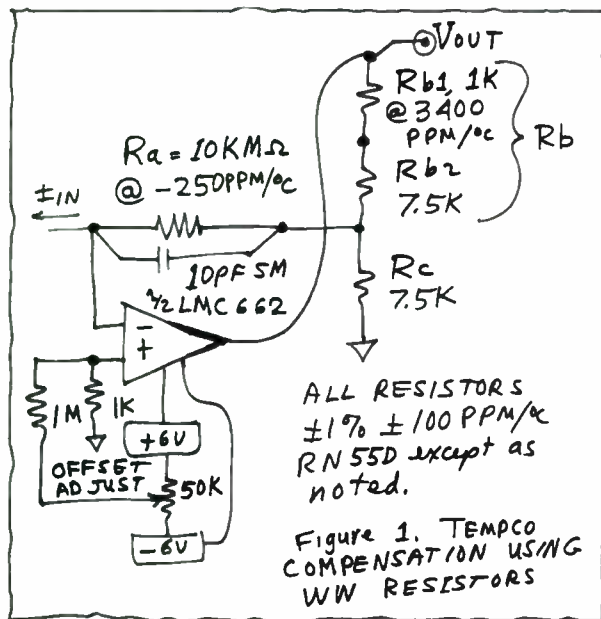 VOUT
Rb1, 1K
@ 3400
PPM/°C
Rb
Rb2
7.5K
Ra = 10KMΩ
@ -250PPM/°C
±IN
10PF SM
1/2 LMC 662
Rc
7.5K
-
+
1M
1K
+6V
OFFSET
ADJUST
50K
-6V
ALL RESISTORS
±1% ±100 PPM/°C
RN55D except as
noted.
Figure 1. TEMPCO
COMPENSATION USING
WW RESISTORS